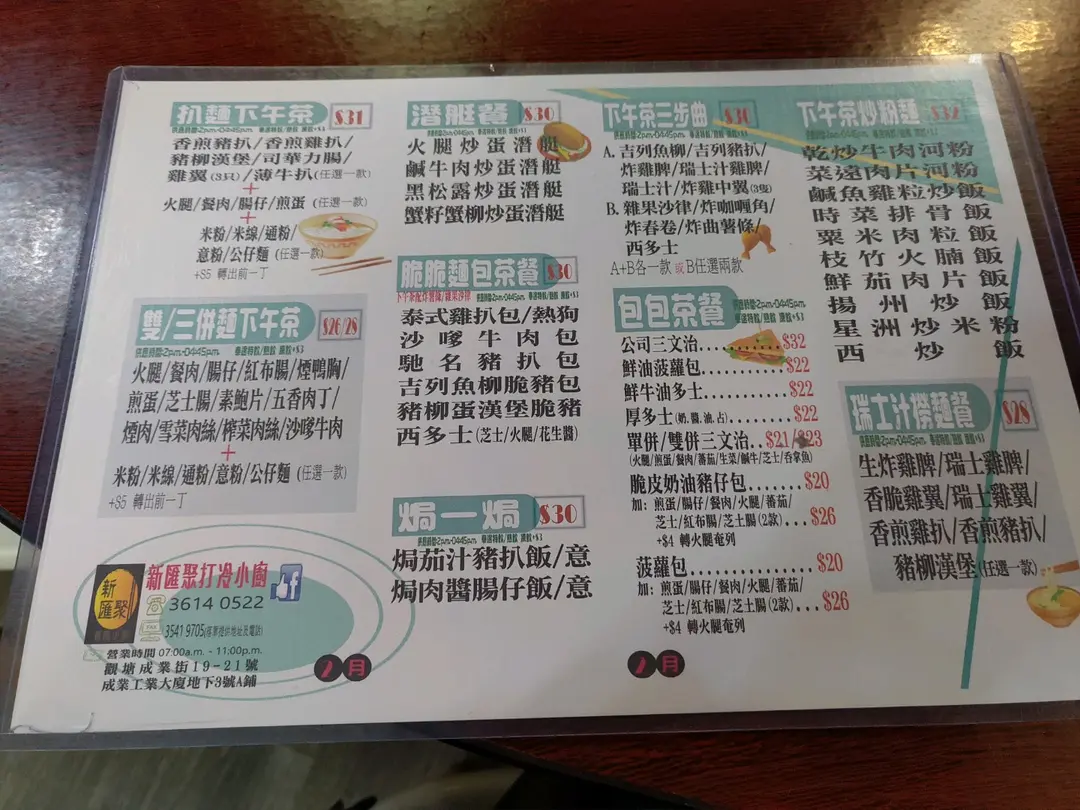 扒麵下午茶 $31
供應時間:2pm-04:45pm. 奉送特飲/熱飲 凍飲+$3
香煎豬扒/香煎雞扒/
豬柳漢堡/司華力腸/
雞翼(3只)/薄牛扒(任選一款)
+
火腿/餐肉/腸仔/煎蛋 (任選一款)
+
米粉/米線/通粉/
意粉/公仔麵 (任選一款)
+$5 轉出前一丁
雙/三併麵下午茶 $26/28
供應時間:2pm-04:45pm. 奉送特飲/熱飲 凍飲+$3
火腿/餐肉/腸仔/紅布腸/煙鴨胸/
煎蛋/芝士腸/素鮑片/五香肉丁/
煙肉/雪菜肉絲/榨菜肉絲/沙嗲牛肉
+
米粉/米線/通粉/意粉/公仔麵 (任選一款)
+$5 轉出前一丁
新匯聚
新匯聚打冷小廚
3614 0522
FAX 3541 9705(客席提供地址及電話)
營業時間 07:00a.m. - 11:00p.m.
觀塘成業街19-21號
成業工業大廈地下3號A鋪
2月
潛艇餐 $30
供應時間:2pm-04:45pm. 奉送特飲/熱飲 凍飲+$3
火腿炒蛋潛艇
鹹牛肉炒蛋潛艇
黑松露炒蛋潛艇
蟹籽蟹柳炒蛋潛艇
脆脆麵包茶餐 $30
供應時間:2pm-04:45pm. 奉送特飲/熱飲 凍飲+$3
泰式雞扒包/熱狗
沙嗲牛肉包
馳名豬扒包
吉列魚柳脆豬包
豬柳蛋漢堡脆豬
西多士(芝士/火腿/花生醬)
焗一焗 $30
供應時間:2pm-04:45pm. 奉送特飲/熱飲 凍飲+$3
焗茄汁豬扒飯/意
焗肉醬腸仔飯/意
下午茶三步曲 $30
供應時間:2pm-04:45pm. 奉送特飲/熱飲 凍飲+$3
A. 吉列魚柳/吉列豬扒/
炸雞脾/瑞士汁雞脾/
瑞士汁/炸雞中翼(3隻)
B. 雜果沙律/炸咖喱角/
炸春卷/炸曲薯條/
西多士
A+B各一款 或 B任選兩款
包包茶餐
供應時間:2pm-04:45pm. 奉送特飲/熱飲 凍飲+$3
公司三文治........$32
鮮油菠蘿包...........$22
鮮牛油多士...........$22
厚多士(奶,醬,油,占).......$22
單併/雙併三文治..$21/$23
(火腿/煎蛋/餐肉/番茄/生菜/鹹牛/芝士/吞拿魚)
脆皮奶油豬仔包.....$20
加: 煎蛋/腸仔/餐肉/火腿/番茄/
芝士/紅布腸/芝士腸(2款)....$26
+$4 轉火腿奄列
菠蘿包.................$20
加: 煎蛋/腸仔/餐肉/火腿/番茄/
芝士/紅布腸/芝士腸(2款)....$26
+$4 轉火腿奄列
2月
下午茶炒粉麵 $32
乾炒牛肉河粉
菜遠肉片河粉
鹹魚雞粒炒飯
時菜排骨飯
粟米肉粒飯
枝竹火腩飯
鮮茄肉片飯
揚州炒飯
星洲炒米粉
西炒飯
瑞士汁撈麵餐 $28
供應時間:2pm-04:45pm. 奉送特飲/熱飲 凍飲+$3
生炸雞脾/瑞士雞脾/
香脆雞翼/瑞士雞翼/
香煎雞扒/香煎豬扒/
豬柳漢堡(任選一款)